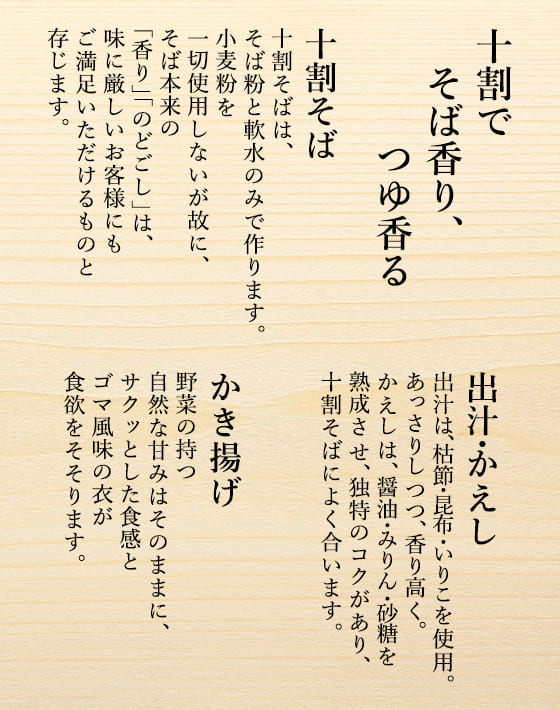 十割で
そば香り、
つゆ香る
十割そば
十割そばは、
そば粉と軟水のみで作ります。
小麦粉を
一切使用しないが故に、
そば本来の
「香り」「のどごし」は、
味に厳しいお客様にも
ご満足いただけるものと
存じます。
出汁・かえし
出汁は、枯節・昆布・いりこを使用。
あっさりしつつ、香り高く。
かえしは、醤油・みりん・砂糖を
熟成させ、独特のコクがあり、
十割そばによく合います。
かき揚げ
野菜の持つ
自然な甘みはそのままに、
サクッとした食感と
ゴマ風味の衣が
食欲をそそります。